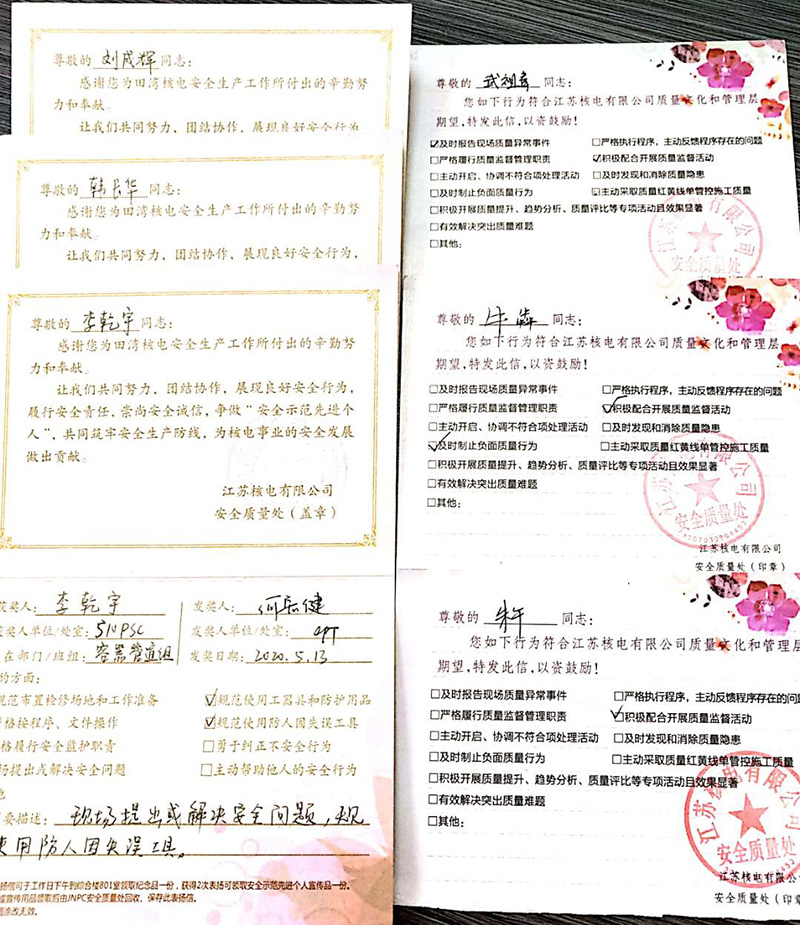 尊敬的 刘成辉 同志：
感谢您为田湾核电安全生产工作所付出的辛勤努
力和奉献。
让我们共同努力，团结协作，展现良好安全行为，
尊敬的 韩长华 同志：
感谢您为田湾核电安全生产工作所付出的辛勤努
力和奉献。
让我们共同努力，团结协作，展现良好安全行为，
尊敬的 李乾宇 同志：
感谢您为田湾核电安全生产工作所付出的辛勤努
力和奉献。
让我们共同努力，团结协作，展现良好安全行为，
履行安全责任，崇尚安全诚信，争做“安全示范先进个
人”，共同筑牢安全生产防线，为核电事业的安全发展
做出贡献。
江苏核电有限公司
安全质量处（盖章）
获奖人：李乾宇
奖人单位/处室：SNPSC
在部门/班组：容器管道组
发奖人：
发奖人单位/处室：OPT
发奖日期：2020.5.13
的方面：
规范布置检修场地和工作准备
☑规范使用工器具和防护用品
格按程序、文件操作
☑规范使用防人因失误工具
格履行安全监护职责
□勇于纠正不安全行为
场提出或解决安全问题
□主动帮助他人的安全行为
他
要描述：现场提出或解决安全问题，规
使用防人因失误工具。
扬信可于工作日下午到综合楼801室领取纪念品一份，获得2次表扬可领取安全示范先进个人宣传品一份。
或宣传用品领取后由JNPC安全质量处回收、保存此表扬信。
涂改无效。
尊敬的 同志：
您如下行为符合江苏核电有限公司质量文化和管理层
期望，特发此信，以资鼓励！
☑及时报告现场质量异常事件
□严格执行程序，主动反馈程序存在的问题
□严格履行质量监督管理职责
☑积极配合开展质量监督活动
□主动开启、协调不符合项处理活动
□及时发现和消除质量隐患
□及时制止负面质量行为
☑主动采取质量红黄线单管控施工质量
□积极开展质量提升、趋势分析、质量评比等专项活动且效果显著
□有效解决突出质量难题
□其他：
江苏核电有限公司
安全质量处
尊敬的 牛犇 同志：
您如下行为符合江苏核电有限公司质量文化和管理层
期望，特发此信，以资鼓励！
□及时报告现场质量异常事件
□严格执行程序，主动反馈程序存在的问题
□严格履行质量监督管理职责
☑积极配合开展质量监督活动
□主动开启、协调不符合项处理活动
□及时发现和消除质量隐患
☑及时制止负面质量行为
□主动采取质量红黄线单管控施工质量
□积极开展质量提升、趋势分析、质量评比等专项活动且效果显著
□有效解决突出质量难题
□其他：
安全质量处
江苏核电有限公司
安全质量处（印章）
尊敬的 朱午 同志：
您如下行为符合江苏核电有限公司质量文化和管理层
期望，特发此信，以资鼓励！
□及时报告现场质量异常事件
□严格执行程序，主动反馈程序存在的问题
□严格履行质量监督管理职责
☑积极配合开展质量监督活动
□主动开启、协调不符合项处理活动
□及时发现和消除质量隐患
□及时制止负面质量行为
□主动采取质量红黄线单管控施工质量
□积极开展质量提升、趋势分析、质量评比等专项活动且效果显著
□有效解决突出质量难题
□其他：
江苏核电有限公司
安全质量处
江苏核电有限公司
安全质量处（印章）